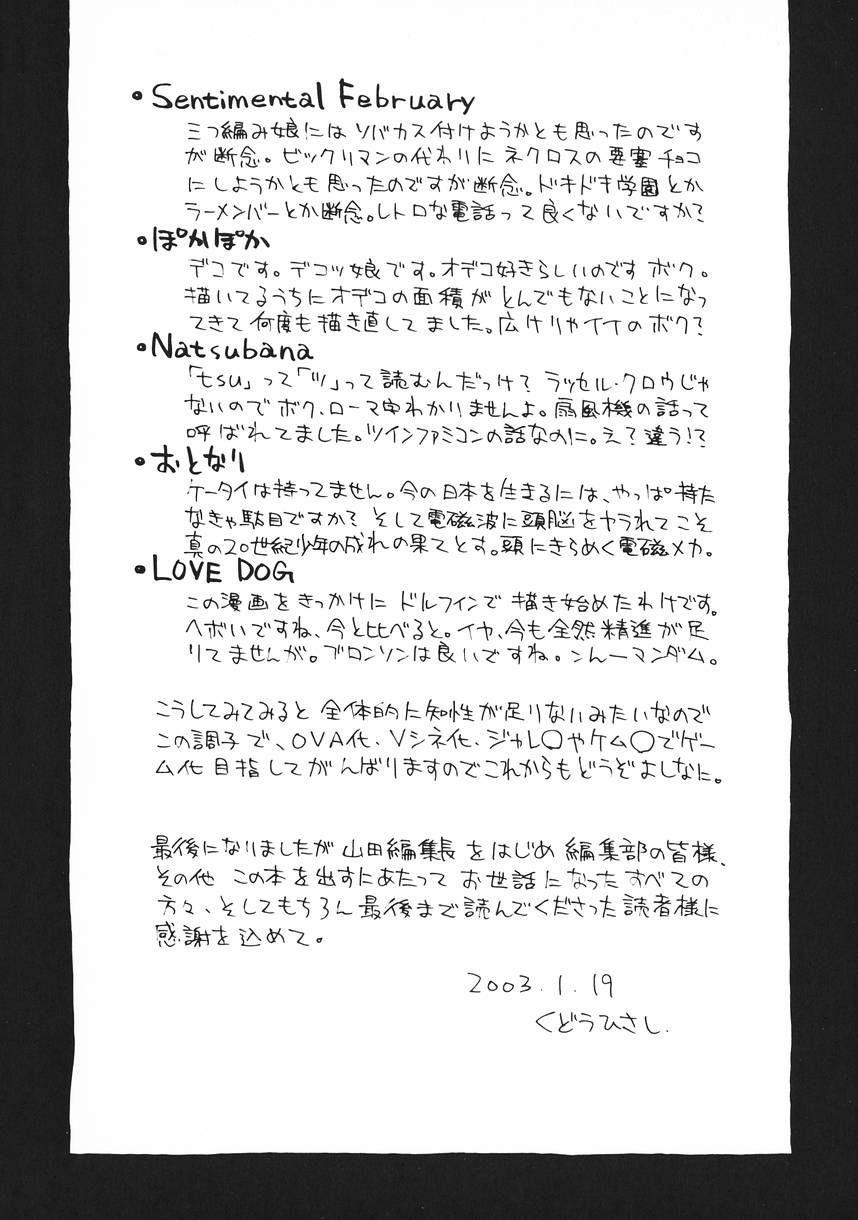 ・Sentimental February
三つ編み娘にはソバカス付けようかとも思ったのです
が断念。ビックリマンの代わりにネクロスの要塞チョコ
にしようかとも思ったのですが断念。ドキドキ学園とか
ラーメンバーとか断念。レトロな電話って良くないですか?
・ぽかぽか
デコです。デコッ娘です。オデコ好きらしいのですボク。
描いてるうちにオデコの面積がとんでもないことになっ
てきて何度も描き直してました。広けりゃイイのボク?
・Natsubana
「tsu」って「ツ」って読むんだっけ?ラッセル・クロウじゃ
ないのでボク、ローマ字わかりませんよ。扇風機の話って
呼ばれてました。ツインファミコンの話なのに。え?違う!?
・おとなり
ケータイは持ってません。今の日本を生きるには、やっぱ持た
なきゃ駄目ですか?そして電磁波に頭脳をヤラれてこそ
真の20世紀少年の成れの果てとす。頭にきらめく電磁メカ。
・LOVE DOG
この漫画をきっかけにドルフィンで描き始めたわけです。
ヘボいですね、今と比べると。イヤ、今も全然精進が足
りてませんが。ブロンソンは良いですね。んんーマンダム。
こうしてみてみると全体的に知性が足りないみたいなので
この調子で、OVA化、Vシネ化、ジャレ○やケム○でゲー
ム化目指してがんばりますのでこれからもどうぞよしなに。
最後になりましたが山田編集長をはじめ編集部の皆様、
その他この本を出すにあたってお世話になったすべての
方々、そしてもちろん最後まで読んでくださった読者様に
感謝を込めて。
2003.1.19
くどうひさし.